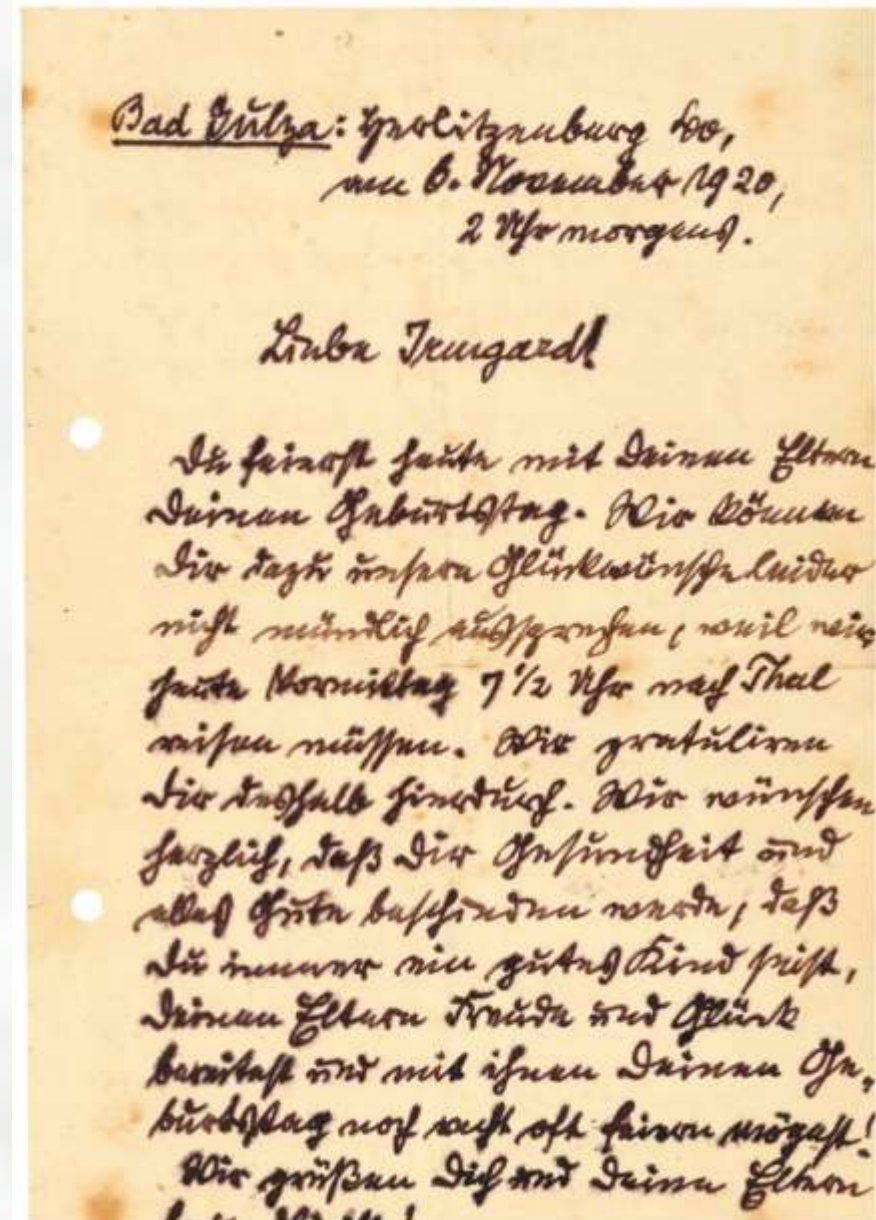 Bad Sulza: Herlitzenberg
am 6. November 1920,
2 Uhr morgens.
Liebe Irmgard!
Du feierst heute mit Deinen Eltern
Deinen Geburtstag. Wir können
Dir dazu unsere Glückwünsche leider
nicht mündlich aussprechen, weil wir
heute Vormittag 7 1/2 Uhr nach Thal
reisen müssen. Wir gratuliren
Dir deshalb hierdurch. Wir wünschen
herzlich, daß Dir Gesundheit und
alles Gute beschieden werde, daß
Du immer ein gutes Kind seist,
Deinen Eltern Freude und Glück
bereitest und mit ihnen Deinen Ge-
burtstag noch recht oft feiern mögest!
Wir grüßen Dich und Deine Eltern